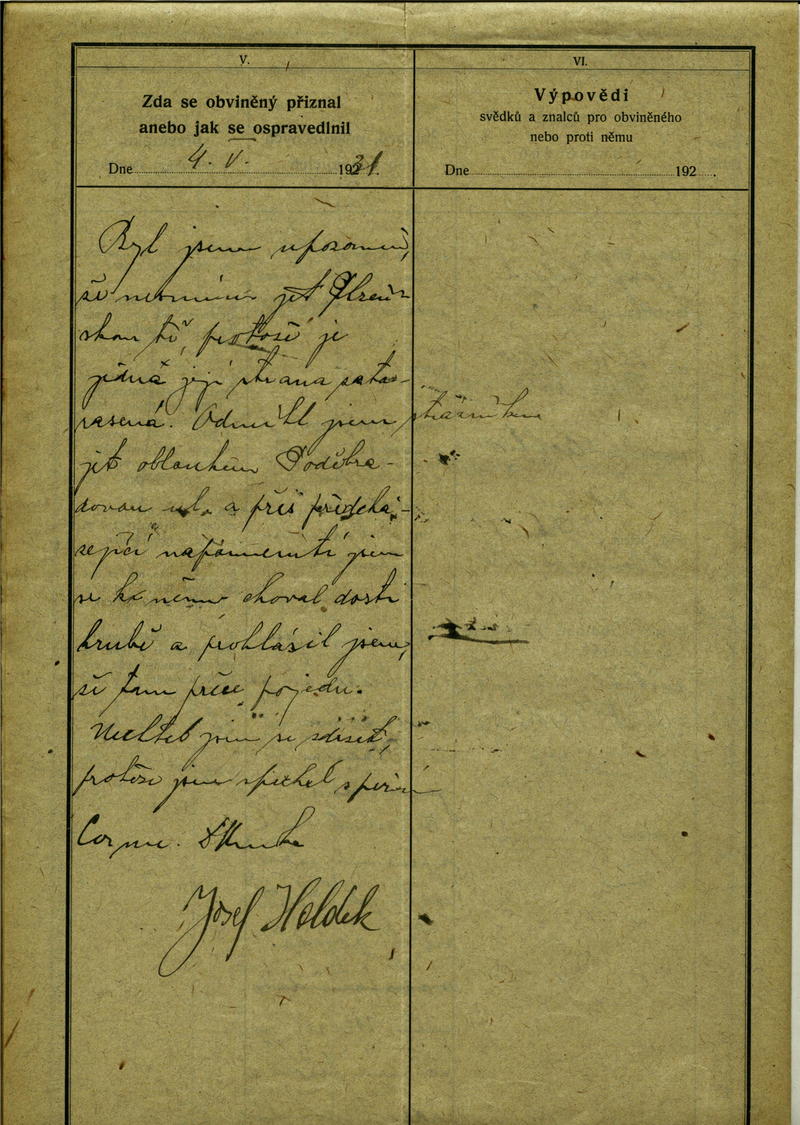 V.
Zda se obviněný přiznal
anebo jak se ospravedlnil
Dne 4. V. 1931.
VI.
Výpovědi
svědků a znalců pro obviněného
nebo proti němu
Dne 192 .
Byl jsem upozorněn,
že nesmím jet Plzeň-
skou tř, protože je
jedna její strana zata-
rasená. Odmítl jsem strážníkem
jet obloukem Poděbra-
dovou ul. a přes předchá-
zející napomenutí jsem
se k němu choval dosti
hrubě a prohlásil jsem,
že tam přece pojedu.
Nechtěl jsem se zdržet,
protože jsem spěchal s
Josef